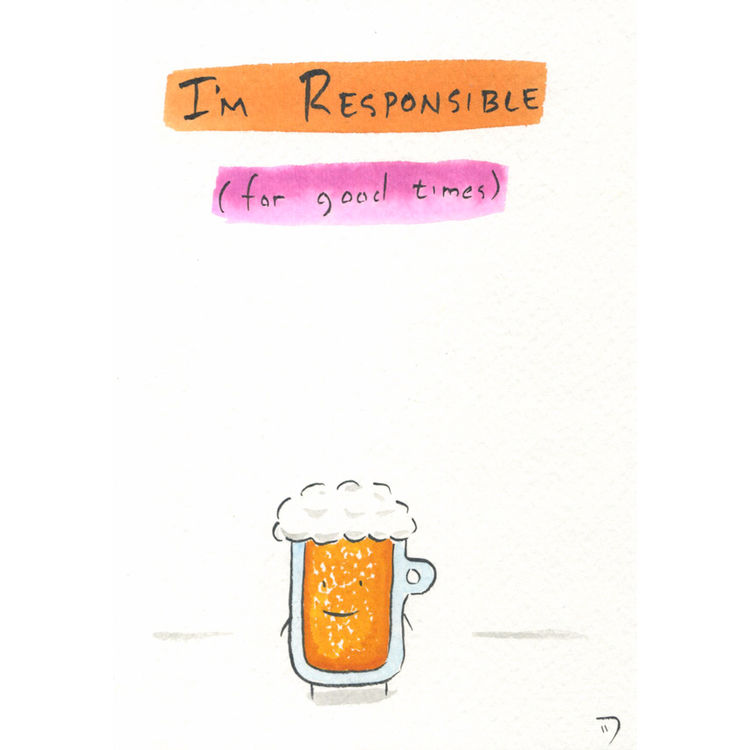 I'm Responsible
(for good times)